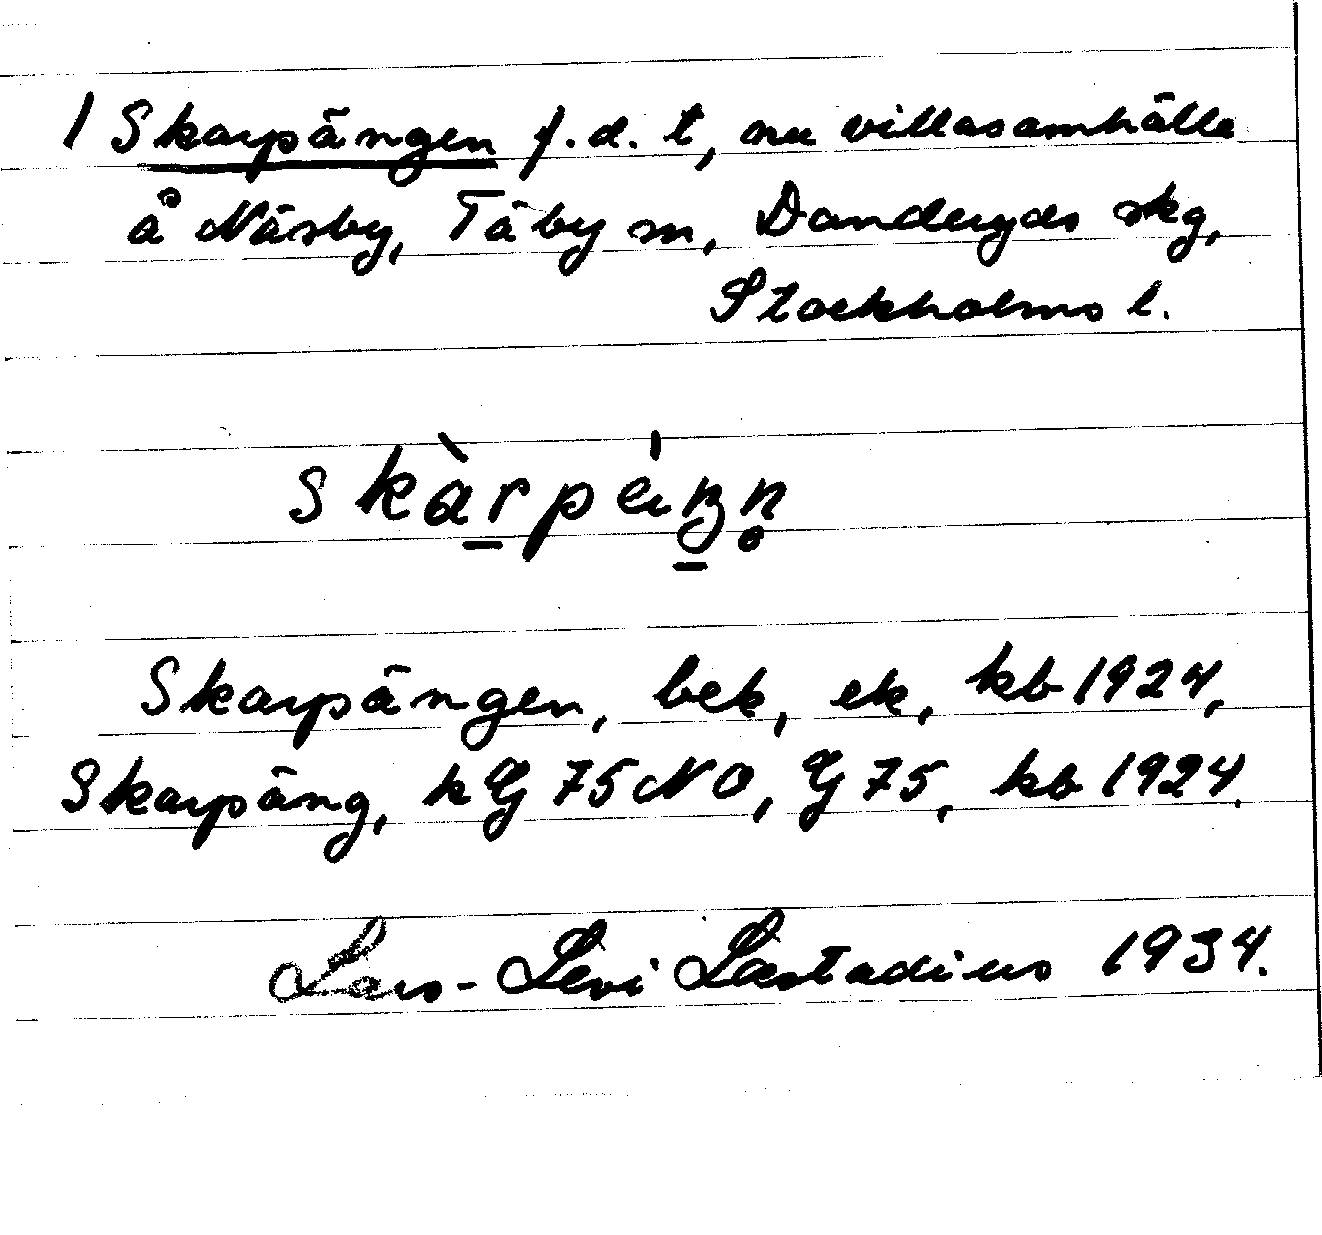 1 Skarpängen f.d. t, nu villasamhälle
å Näsby, Täby sn, Danderyds skg,
Stockholms l.
Skarpängen, bek, ek, kb 1924,
Skarpäng, k G 75 NO, G 75, kb 1924.
Lars-Levi Læstadius 1934.